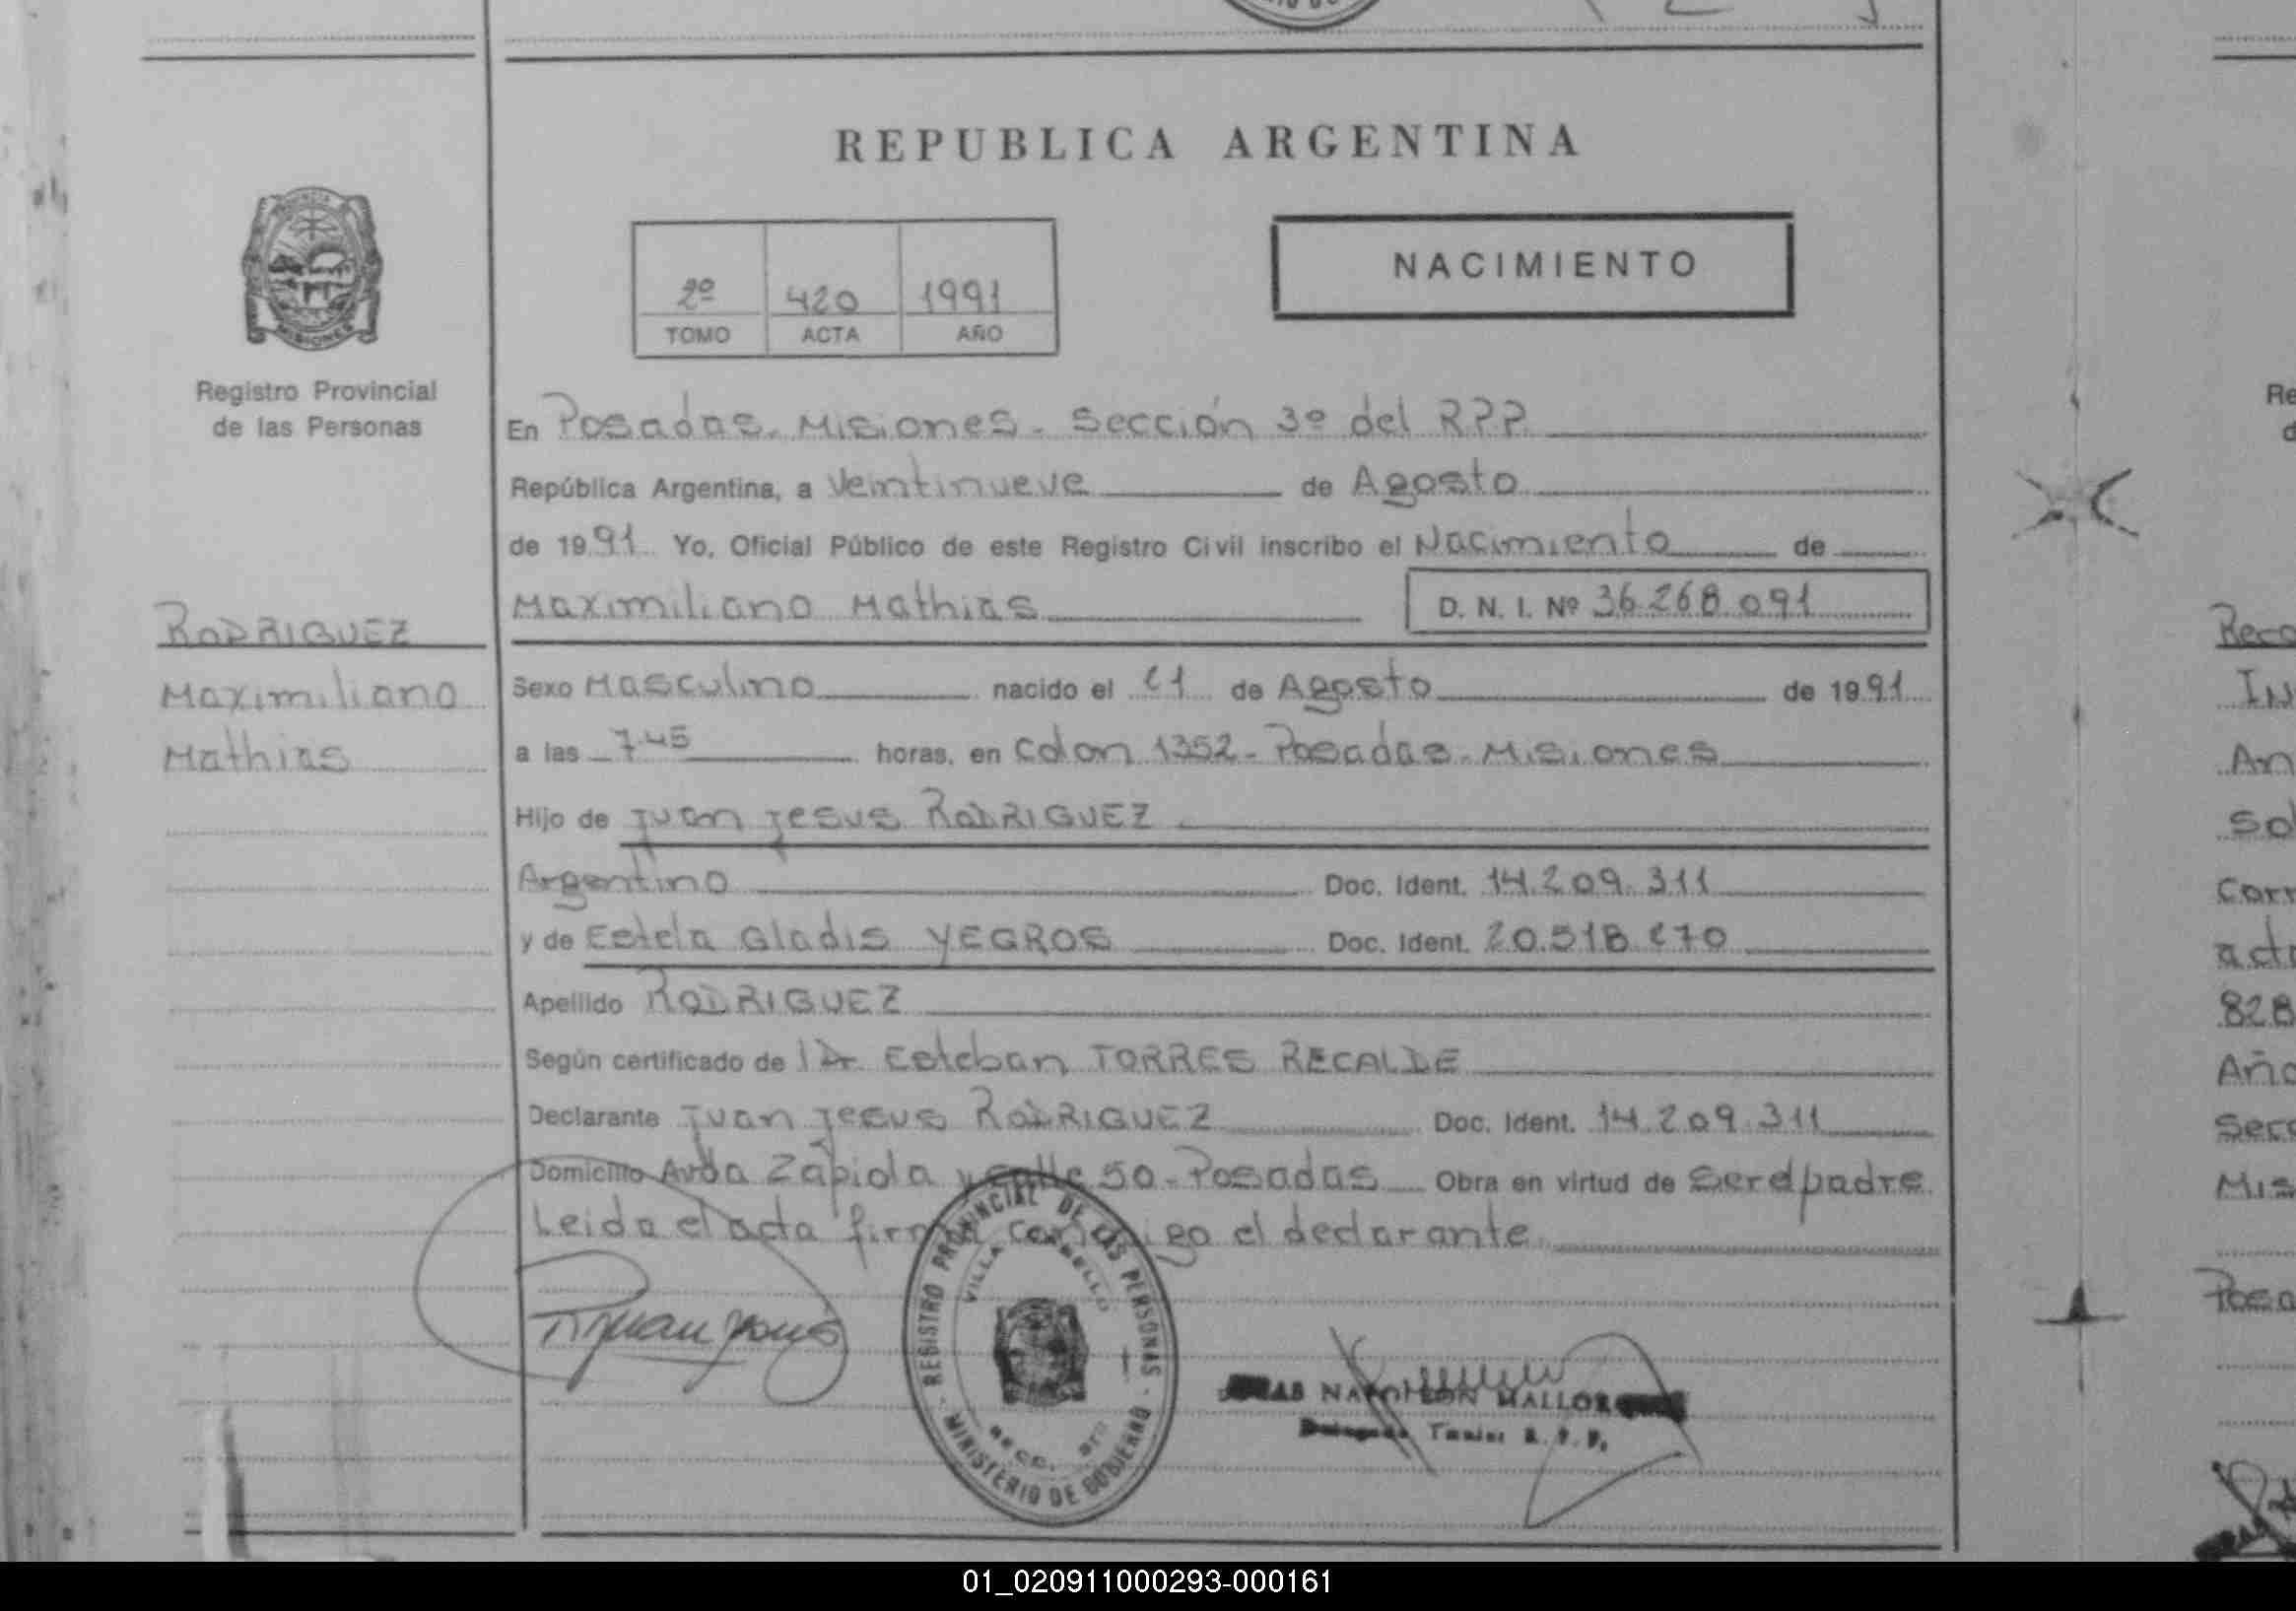 REPUBLICA ARGENTINA
NACIMIENTO
2º 420 1991
TOMO ACTA AÑO
MISIONES
Registro Provincial
de las Personas
RODRIGUEZ
Maximiliano
Mathias
En Posadas. Misiones. Sección 3º del RPP
República Argentina, a Veintinueve de Agosto
de 1991 Yo, Oficial Público de este Registro Civil inscribo el Nacimiento de
Maximiliano Mathias D. N. I. Nº 36.268.091
Sexo Masculino nacido el 21 de Agosto de 1991
a las 7.45 horas, en Colon 1352 - Posadas. Misiones
Hijo de Juan Jesus RODRIGUEZ
Argentino Doc. Ident. 14.209.311
y de Estela Gladis YEGROS Doc. Ident. 20.518.270
Apellido RODRIGUEZ
Según certificado de l Dr. Esteban TORRES RECALDE
Declarante Juan Jesus RODRIGUEZ Doc. Ident. 14.209.311
Domicilio Avda Zapiola y calle 50 - Posadas Obra en virtud de Ser el padre.
Leida el acta firma conmigo el declarante.
REGISTRO PROVINCIAL DE LAS PERSONAS - MINISTERIO DE GOBIERNO -
VILLA
SECC. 3ra
NAPOLEON
R. P. P.
Reco
IN
An
Sol
Corr
acta
828
Año
Secc
Mis
Posa
01_020911000293-000161